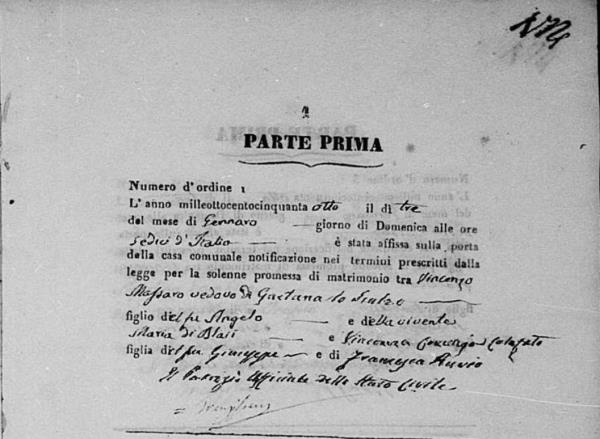 1
PARTE PRIMA
Numero d'ordine 1
L'anno milleottocentocinquanta otto il dì tre
del mese di Gennaro giorno di Domenica alle ore
sedici d'Italia è stata affissa sulla porta
della casa comunale notificazione nei termini prescritti dalla
legge per la solenne promessa di matrimonio tra Vincenzo
Massaro vedovo di Gaetana lo
figlio del fu Angelo e della vivente
Maria di Blasi e Vincenza
figlia del fu Giuseppe e di Francesca
Il Uffiziale dello Stato Civile